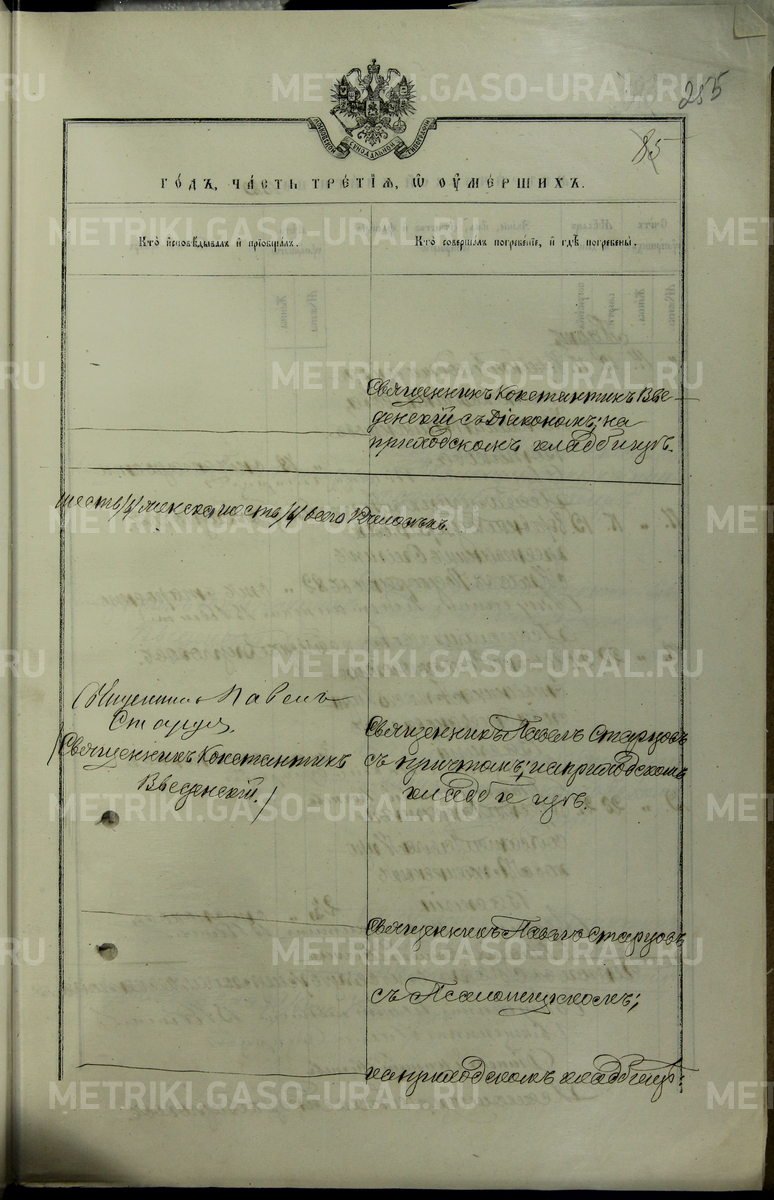 METRIKI.GASO-URAL.RU
255
85
МОСКОВСКОЙ СѴНОДАЛЬНОЙ ТИПОГРАФІИ
ГО́ДЪ, ЧА́СТЬ ТРЕ́ТІѦ, Ѡ ОУ҆МЕ́РШИХЪ.
Кто̀ и҆сповѣ́дывалъ и҆ прїобща́лъ.
Кто̀ соверша́лъ погребе́нїе, и҆ гдѣ̀ погребены̀.
Священникъ Константинъ Вве-
денскій съ Діакономъ; на
приходскомъ кладбищѣ.
шесть /6/ женска шесть /6/ всего
Священникъ Павелъ
Старцовъ
/Священникъ Константинъ
Введенскій./
Священникъ Павелъ Старцовъ
съ причтомъ; на приходскомъ
кладбищѣ.
Священникъ Павелъ Старцовъ
съ Псаломщикомъ;
на приходскомъ кладбищѣ.